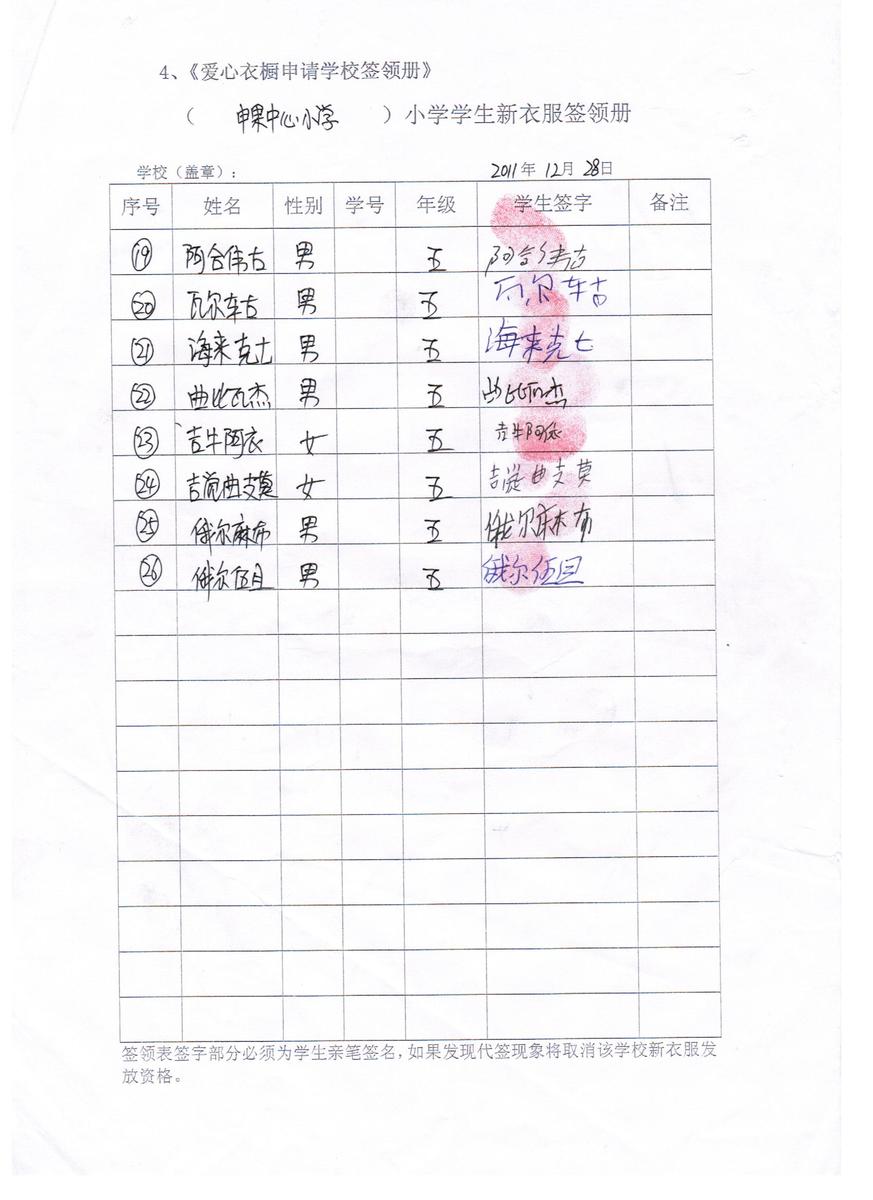 4、《爱心衣橱申请学校签领册》
（ 申果中心小学 ）小学学生新衣服签领册
学校（盖章）： 2011年 12月 28日
序号 姓名 性别 学号 年级 学生签字 备注
⑲ 阿合伟古 男 五 阿合伟古
⑳ 瓦尔车古 男 五 瓦尔车古
㉑ 海来克士 男 五 海来克七
㉒ 曲比瓦杰 男 五 曲比瓦杰
㉓ 吉牛阿衣 女 五 吉牛阿依
㉔ 吉觉曲支莫 女 五 吉觉曲支莫
㉕ 俄尔麻布 男 五 俄尔麻布
㉖ 俄尔伍且 男 五 俄尔伍且
签领表签字部分必须为学生亲笔签名，如果发现代签现象将取消该学校新衣服发
放资格。